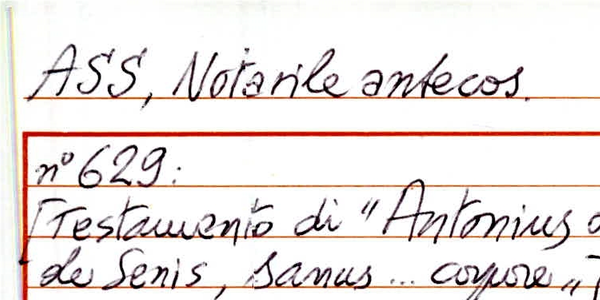 ASS, Notarile antecos.
n° 629:
[Testamento di "Antonius
de Senis, sanus... corpore"